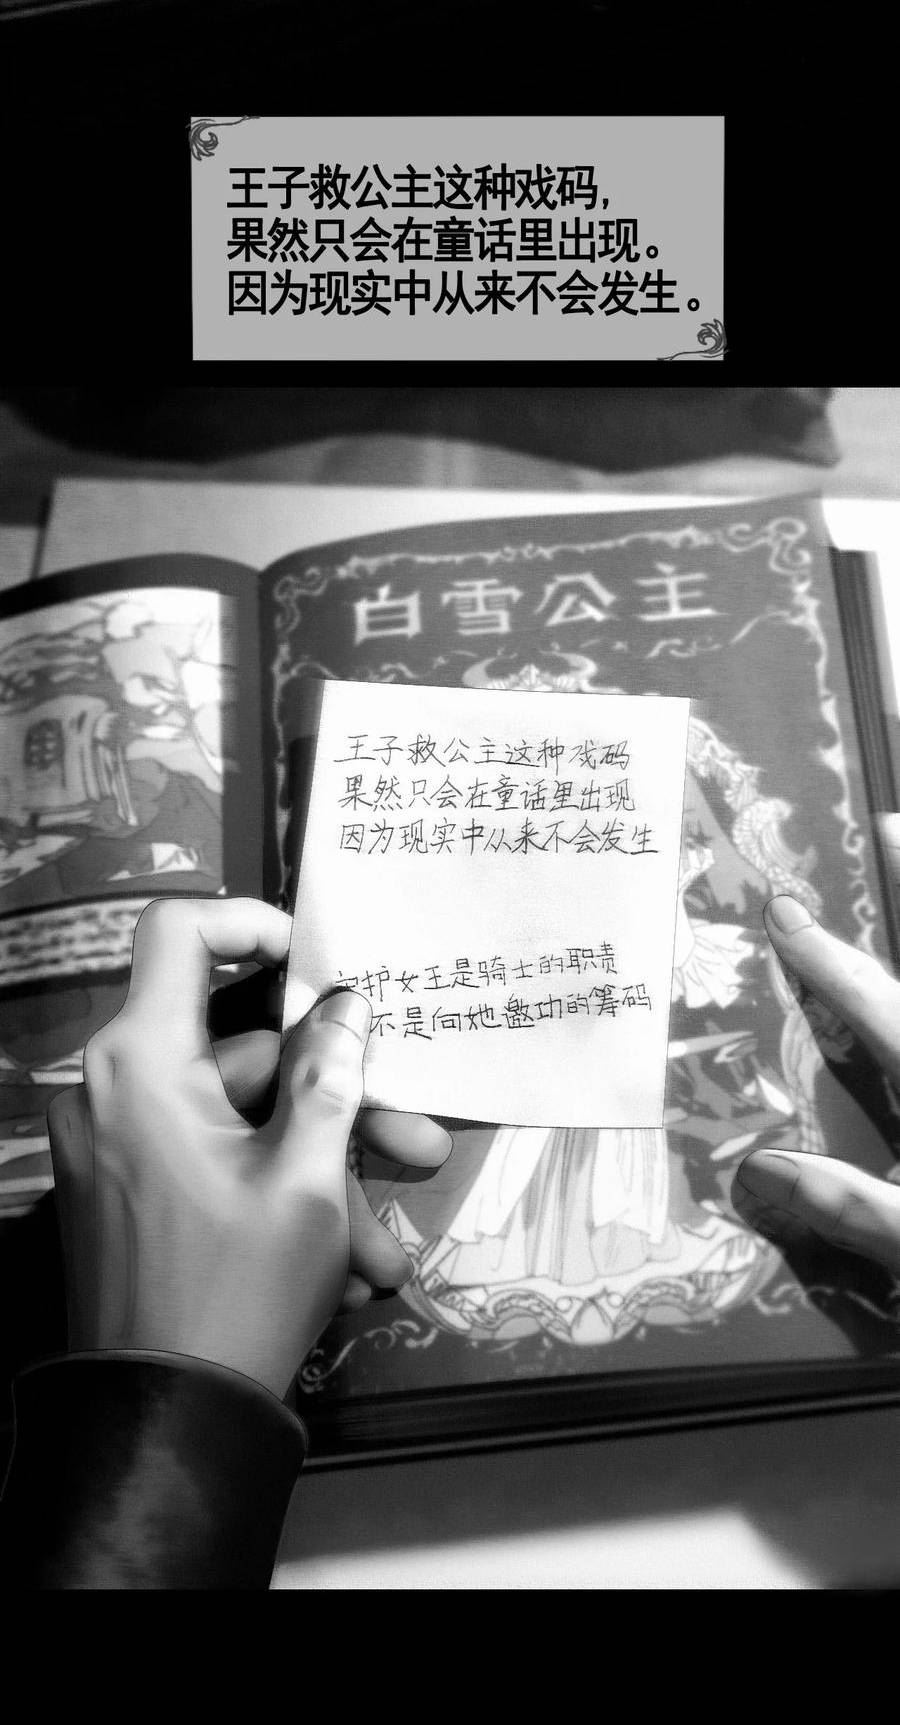 王子救公主这种戏码，
果然只会在童话里出现。
因为现实中从来不会发生。
白雪公主
王子救公主这种戏码
果然只会在童话里出现
因为现实中从来不会发生
护女王是骑士的职责
不是向她邀功的筹码